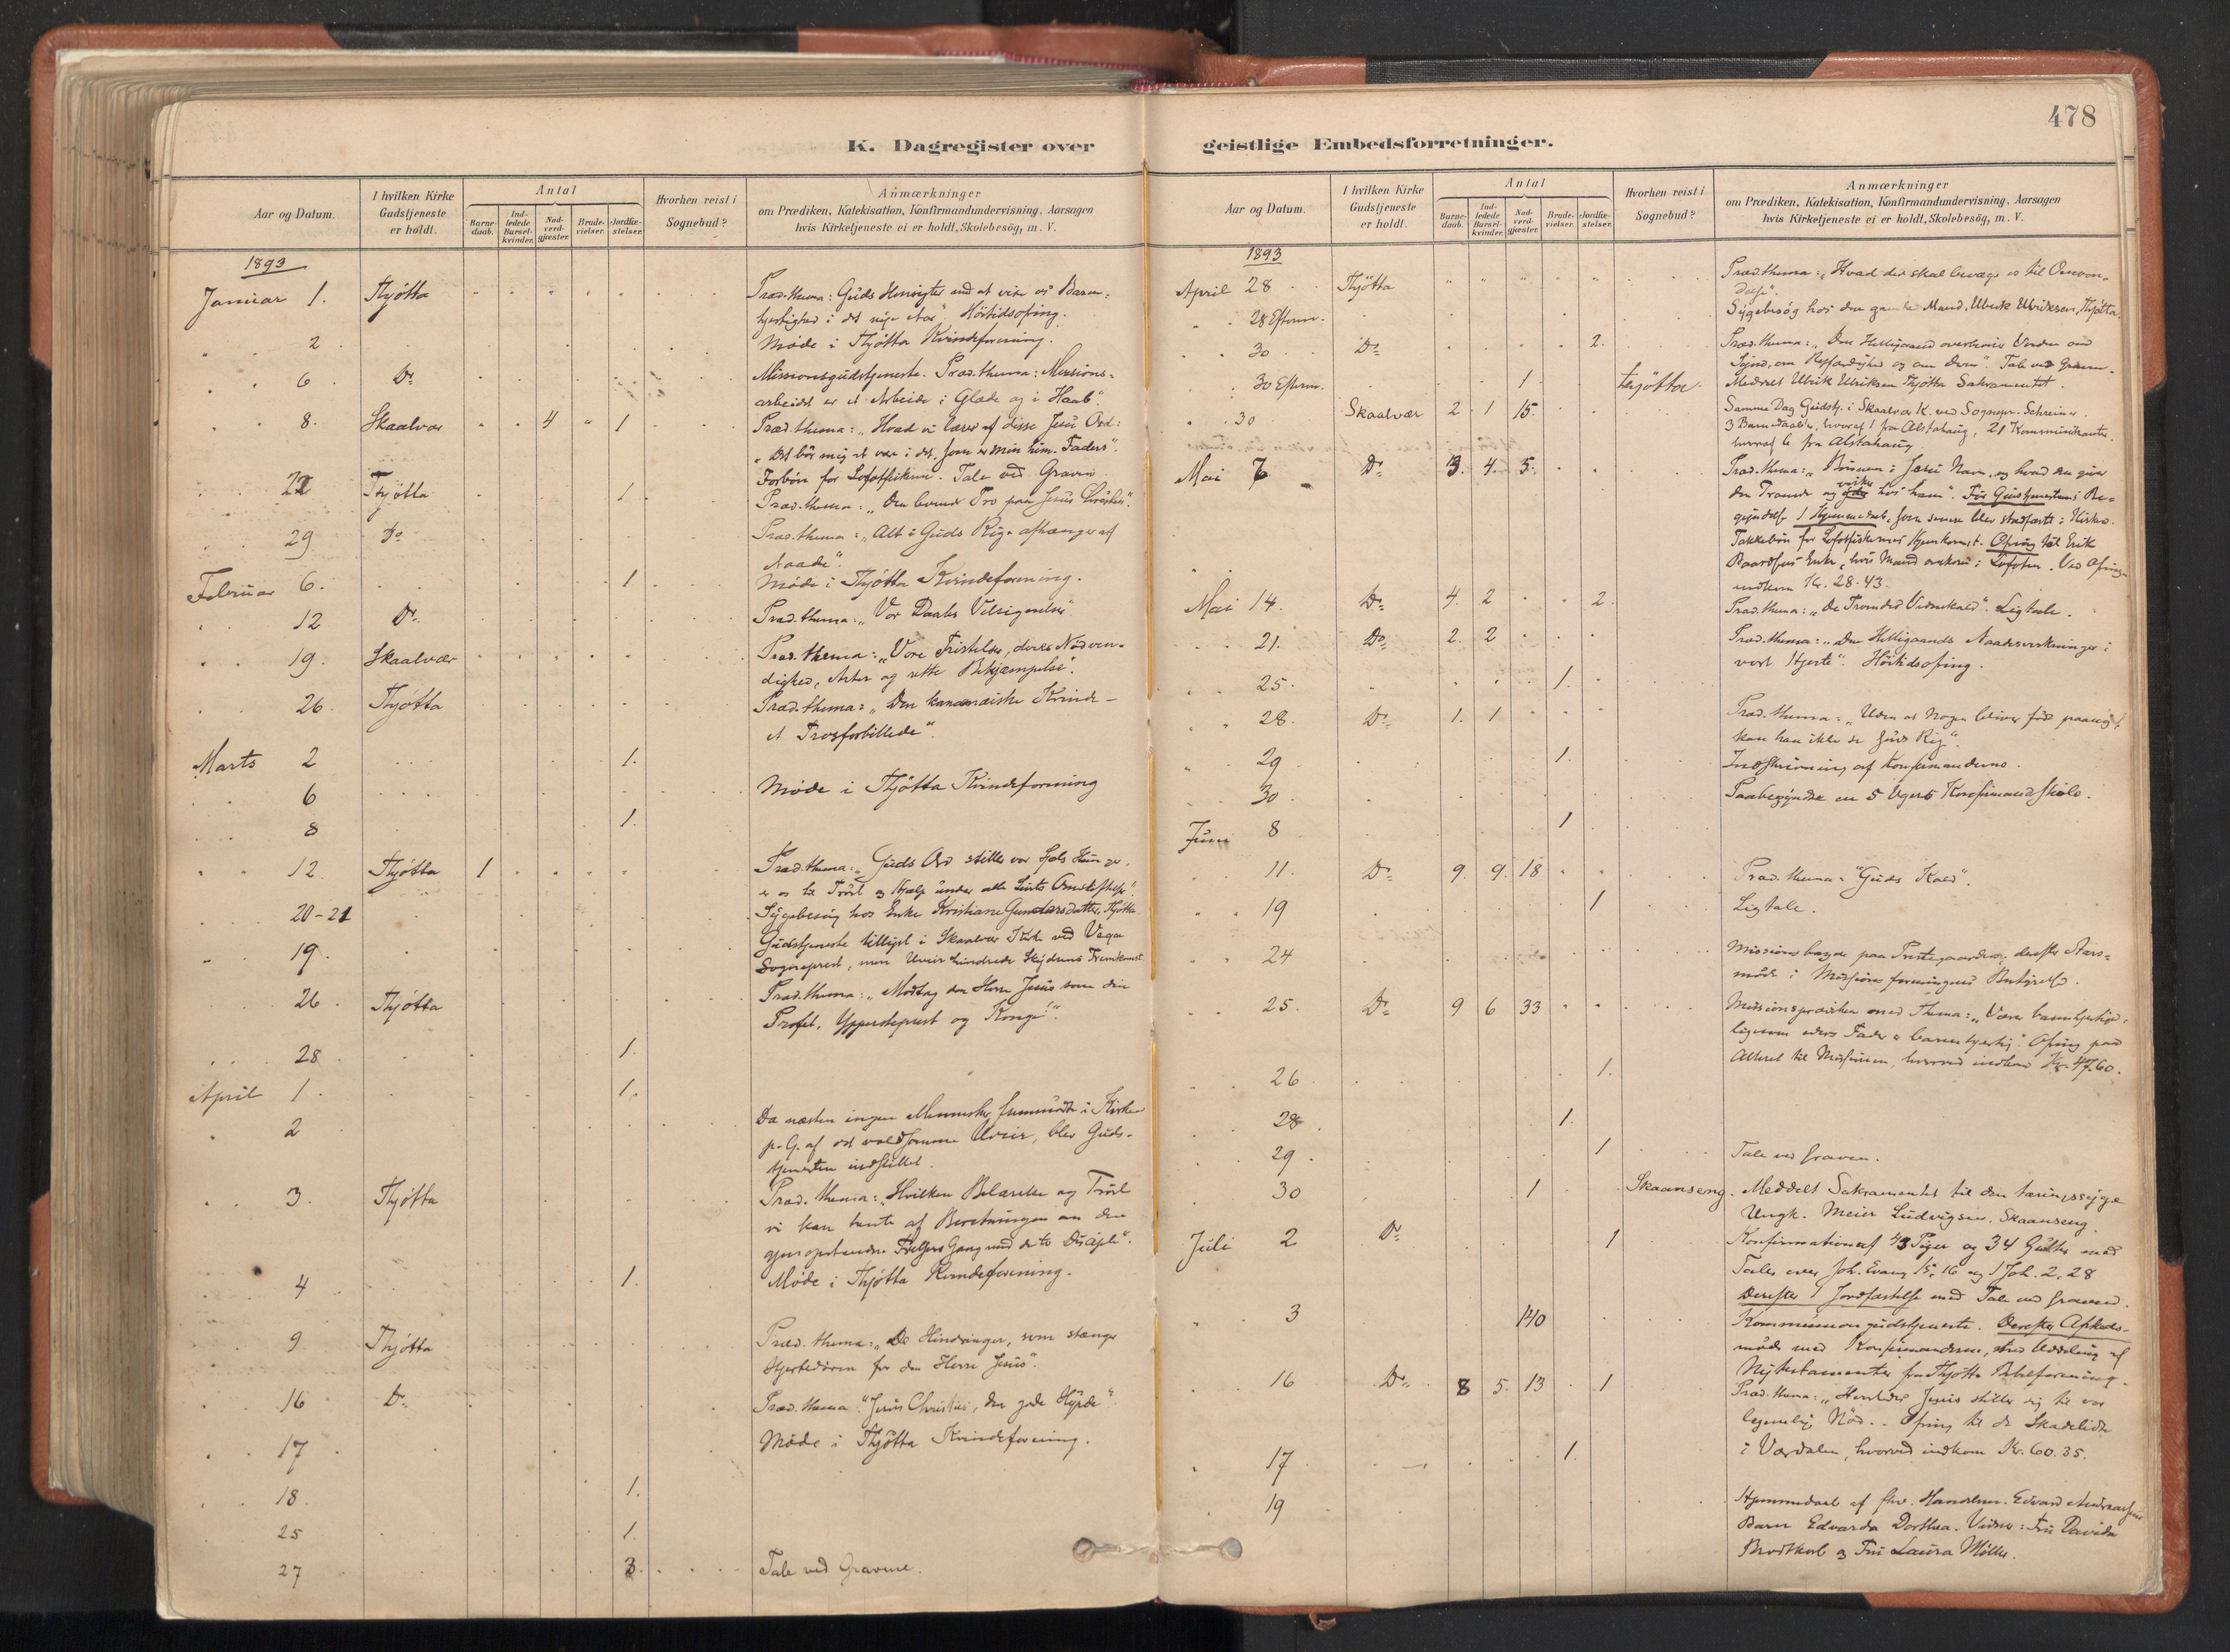 478
K. Dagregister over geistlige Embedsforretninger.
Aar og Datum.
I hvilken Kirke Gudstjeneste er holdt.
Antal
Barne-daab.
Ind-ledede Barsel-kvinder.
Nad-verd-gjæster.
Brude-vielser.
Jordfæ-stelser.
Hvorhen reist i Sognebud?
Anmærkninger
om Prædiken, Katekisation, Konfirmandundervisning, Aarsagen
hvis Kirketjeneste ei er holdt, Skolebesög, m. V.
1893
Januar 1. Thjøtta Præd. thema: Guds Hensigter med at vise os Barm-
hjertighed i det nye Aar". Höitidsofring.
2 Møde i Thjøtta Kvindeforening.
6 Do Missionsgudstjeneste. Præd. thema: Missions-
arbeidet er et Arbeide i Glæde og i Haab".
8. Skaalvær 4 " 1 Præd. thema: "Hvad vi lærer af disse Jesu Ord:
"Det bör mig at være i det, som er min him. Faders".
Forbön for Lofotfiskerne. Tale ved Graven.
22 Thjøtta 1 Præd. thema: "Den levende Tro paa Jesus Christus".
29 Do Præd. thema: "Alt i Guds Rige afhænger af
Naade".
Februar 6. 1 Møde i Thjøtta Kvindeforening.
12 Do Præd. thema: "Vor Daabs Velsignelse"
19. Skaalvær Præd. thema: "Vore Fristelser, deres Nødven-
dighed, Arter og rette Bekjæmpelse".
26. Thjøtta Præd. thema: "Den kananæiske Kvinde -
et Trosforbillede".
Marts 2 1.
6 Møde i Thjøtta Kvindeforening
8 1.
12. Thjøtta 1 Præd. thema: "Guds Ord stiller vor Sjæls Hunger,
er os til Tröst og Hjælp under alle Livets
20-21 Sygebesög hos Enke Kristiane Gundersdatter, Thjøtta
19. Gudstjeneste tilligst i Skaalvær Kirke ved Vega
Sogneprest, men Uveir hindrede Skydsens Fremkomst
26 Thjøtta Præd. thema: "Modtag den Herre Jesus som din
Profet, Ypperstepræst og Konge!".
28 1.
April 1. 1.
2 Da næsten ingen Mennesker fremmødte i Kirken
p. G. af det voldsomme Uveir, blev Guds-
tjenesten indstillet.
3. Thjøtta Præd. thema: "Hvilken Belærelse og Tröst
vi kan hente af Beretningen om den
gjenopstandne Frelsers Gang med de to Disciple".
4 1. Møde i Thjøtta Kvindeforening.
9 Thjøtta Præd. thema: "De Hindringer, som stænger
Hjertedören for den Herre Jesus".
16 Do Præd. thema: "Jesus Christus, den gode Hyrde".
17 Møde i Thjøtta Kvindeforening.
18. 1.
25 1.
27 3. Tale ved Gravene.
Aar og Datum.
I hvilken Kirke Gudstjeneste er holdt.
Antal
Barne-daab.
Ind-ledede Barsel-kvinder.
Nad-verd-gjæster.
Brude-vielser.
Jordfæ-stelser.
Hvorhen reist i Sognebud?
Anmærkninger
om Prædiken, Katekisation, Konfirmandundervisning, Aarsagen
hvis Kirketjeneste ei er holdt, Skolebesög, m. V.
1893
April 28 Thjøtta Præd. thema: "Hvad der skal bevæge os til Omven-
delse".
28 Efterm. Sygebesög hos den gamle Mand, Ulrik Ulriksen, Thjøtta.
30 Do 2. Præd. thema: "Den Helligaand overbeviser Verden om
Synd, om Retfærdighed og om Dom". Tale ved Graven.
30 Efterm. 1 Thjøtta. Meddelt Ulrik Ulriksen Thjøtta Sakramentet.
30 Skaalvær 2 1 15. Samme Dag Gudstj. i Skaalvær K. ved Sognepr. Schreiner.
3 Barnedaaber, hvoraf 1 fra Alstahaug, 21 Kommunikanter,
hvoraf 6 fra Alstahaug
Mai 7 Do 3. 4. 5. Præd. thema: "Bönnen i Jesu Navn, og hvad den giver
den Troende og virker hos ham". Før Gudstjenestens Be-
gyndelse 1 Hjemmedaab, som senere blev stadfæstet i Kirken.
Takkebön for Lofotfiskernes Hjemkomst. Ofring til Erik
Enke, hvis Mand omkom i Lofoten. Ved Ofring
indkom Kr. 28.43.
Mai 14. Do 4. 2 2. Præd. thema: "De Troendes Vidnekald". Ligtale.
21. Do 2. 2 Præd. thema: "Den Helligaands Naadevirkninger i
vort Hjerte". Höitidsofring.
25. 1.
28. Do 1. 1 Præd. thema: "Uden at Nogen bliver född paany,
kan han ikke se Guds Rige".
29 1. Indskrivning af Konfirmanderne.
30 Paabegyndte en 5 Ugers Konfirmandskole.
Juni 8 1
11. Do 9. 9. 18 Præd. thema: "Guds Kald".
19 1 Ligtale.
24 Missionsbazar paa Prestegaarden, derefter Aars-
møde i Missionsforeningens Bestyrelse.
25. Do 9 6 33 Missionspræken med Thema: "Værer barmhjertige,
ligesom eders Fader er barmhjertig". Ofring paa
Alteret til Missionen, hvorved indkom Kr. 47.60.
26 1.
28 1.
29 1 Tale ved Graven.
30 1 Skaanseng. Meddelt Sakramentet til den tæringssyge
Ungk. Meier Ludvigsen, Skaanseng.
Juli 2 Do 1 Konfirmation af 43 Piger og 34 Gutter med
Taler over Joh. Evang. 15, 16 og 1 Joh. 2, 28
Derefter 1 Jordfæstelse med Tale ved Graven.
3 140 Kommuniongudstjeneste. Derefter Afskeds-
møde med Konfirmanderne, med Uddeling af
Nytestamenter fra Thjøtta Bibelforening.
16 Do 8 5. 13 1 Præd. thema: "Hvorledes Jesus stiller sig til vor
legemlig Nöd. - Ofring til de Skadelidte
i Værdalen, hvorved indkom Kr. 60.35.
17 1.
19 Hjemmedaab af Edvard Andreassens
Barn Edvarda Dorthea. Vidner: Fru Davida
Brodtkorb og Fru Laura Møller.